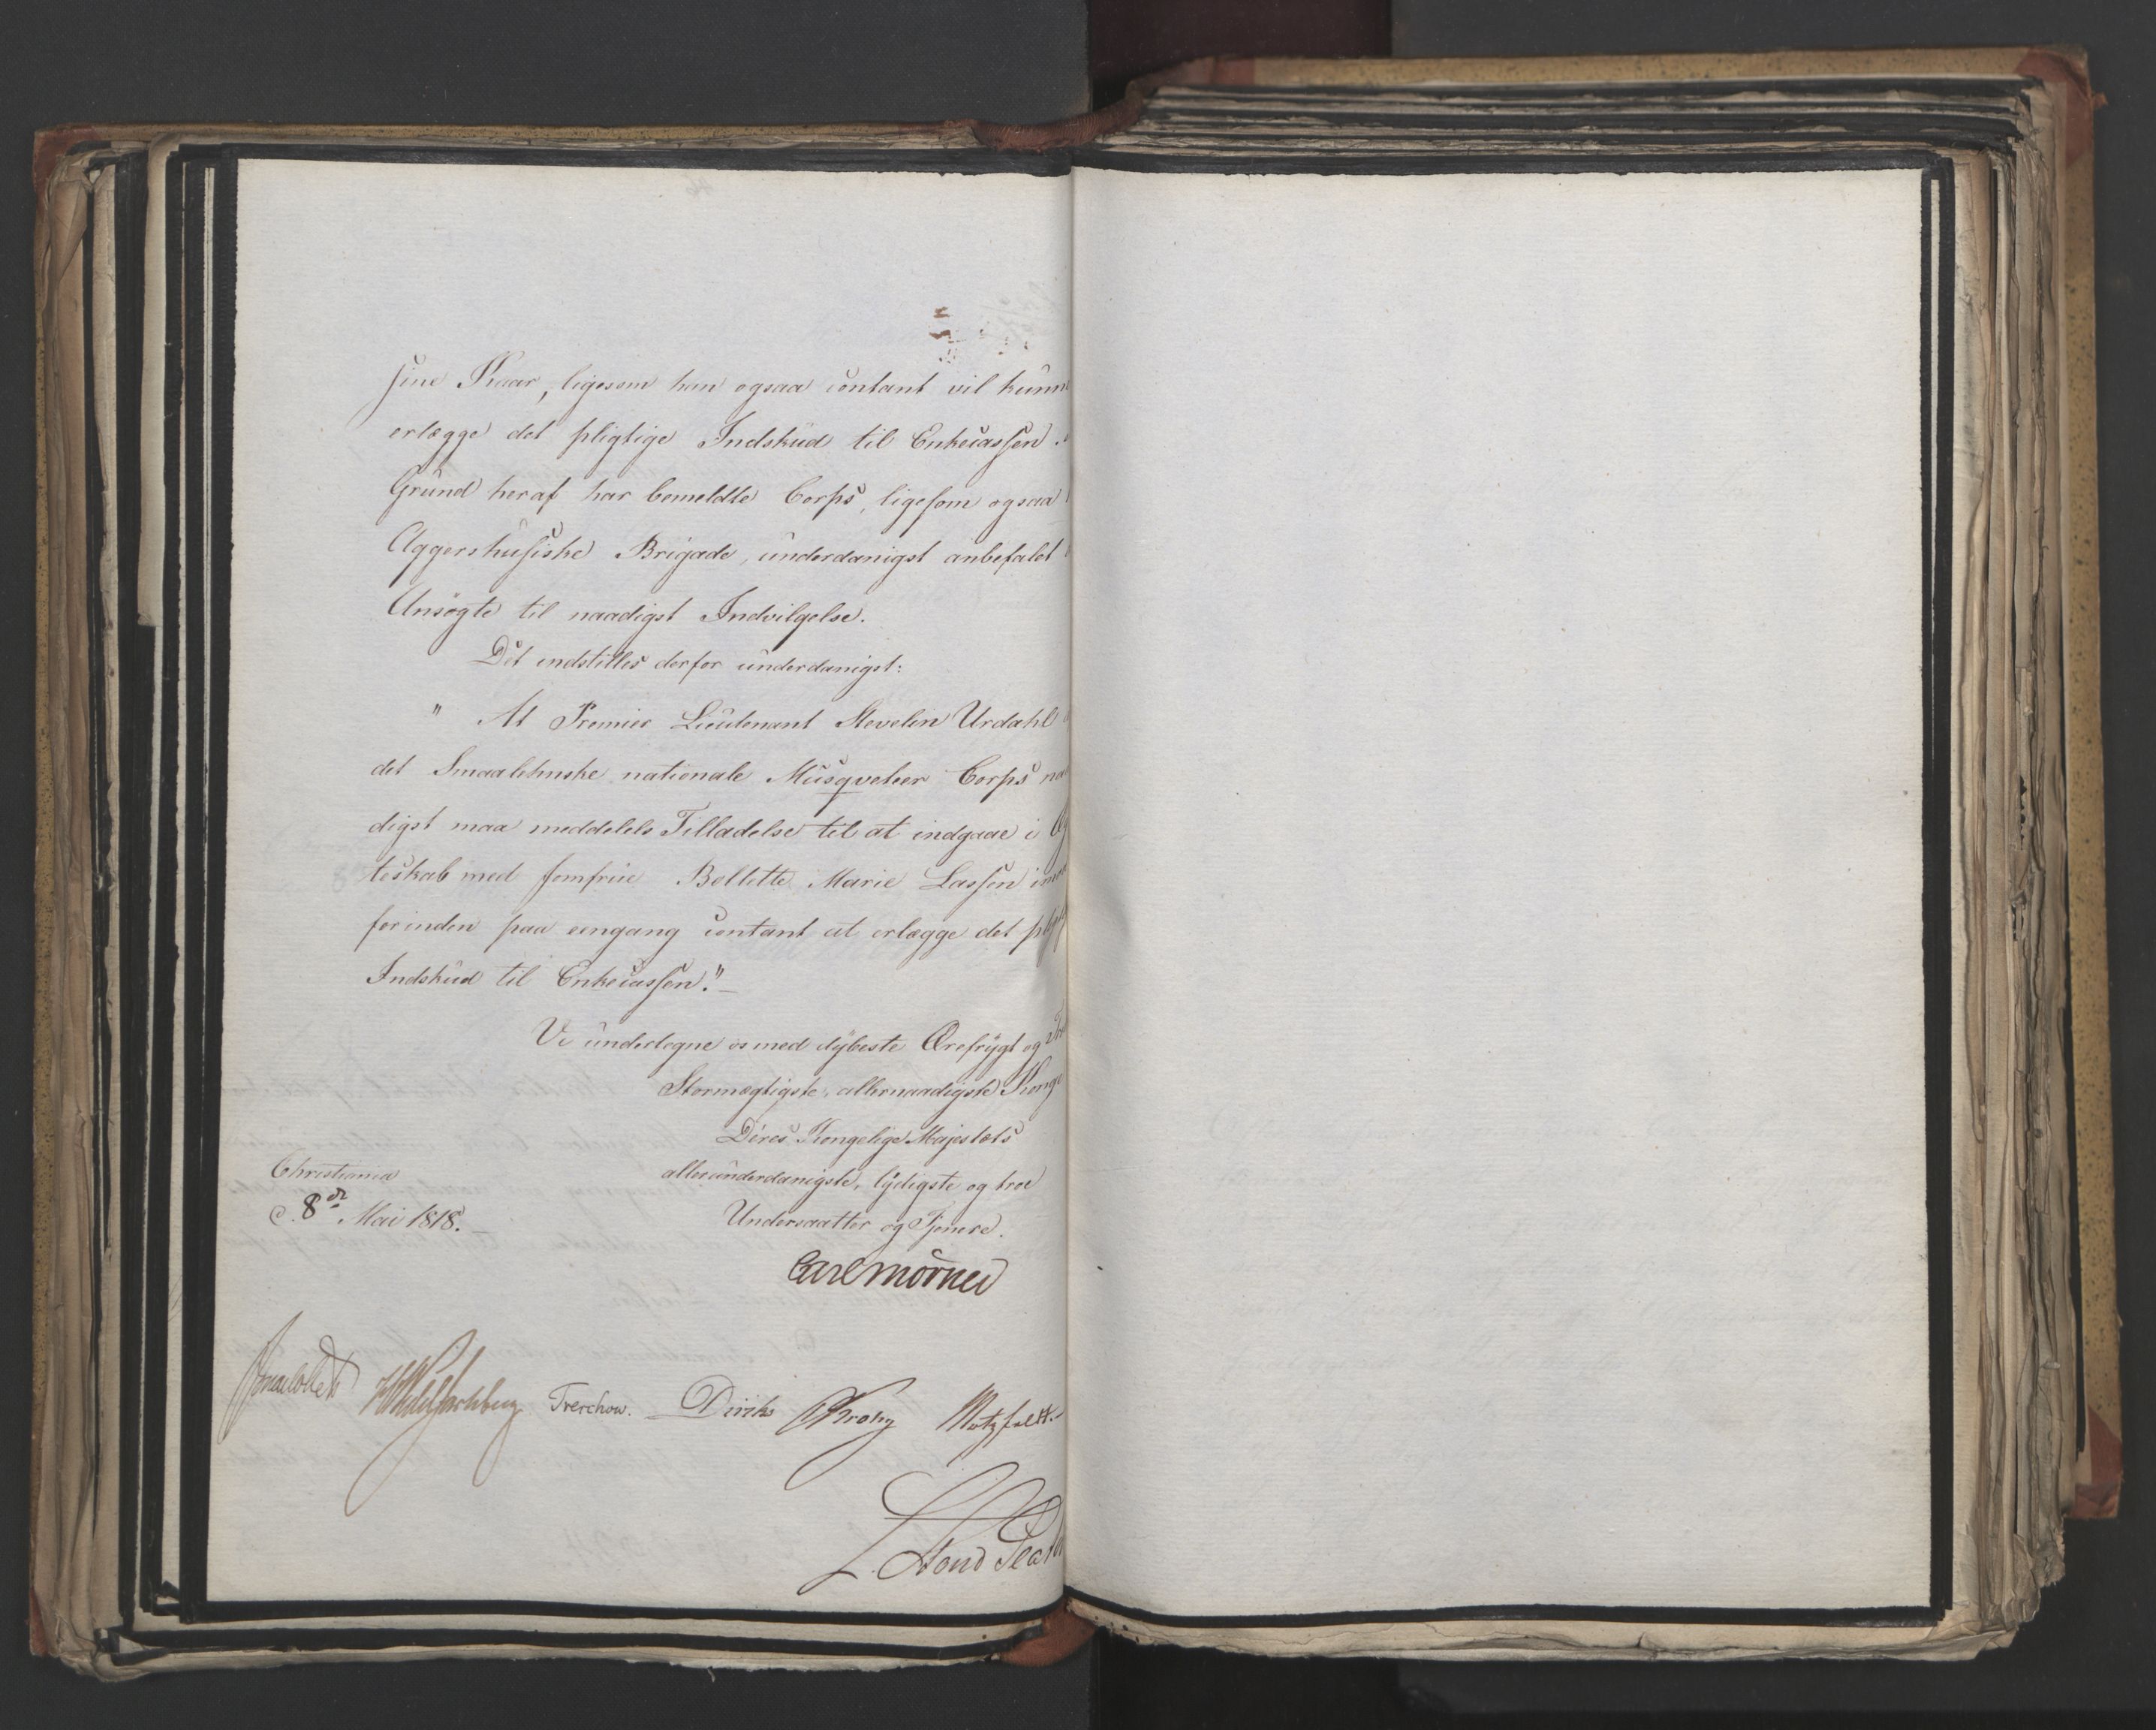 sine Kaar, ligesom han ogsaa contant vil kunn
erlægge det pligtige Indskud til Enkecassen.
Grund heraf har bemeldte Corps, ligesom ogsaa
Aggershusiske Brigade, underdanigst anbefalet
Ansøgte til naadigst Indvilgelse.
Det indstilles derfor underdanigst:
" At Premier Lieutenant Stevelin Urdahl
det Smaalehnske nationale Musqveteer Corps naa
digst maa meddeles Tilladelse til at indgaae i Æg
teskab med Jomfrue Bollette Marie Lassen imod
forinden paa eengang contant at erlægge det pligt
Indskud til Enkecassen."
Vi undertegne os med dybeste Ærefrygt og Tro
Stormægtigste, allernaadigste Konge
Deres Kongelige Majestæts
allerunderdanigste, lydigste og troe
Undersaatter og Tjenere.
Christiania
d. 8de Mai 1818.
Carl Mörner
Treschow. Diriks Krohg Motzfeldt